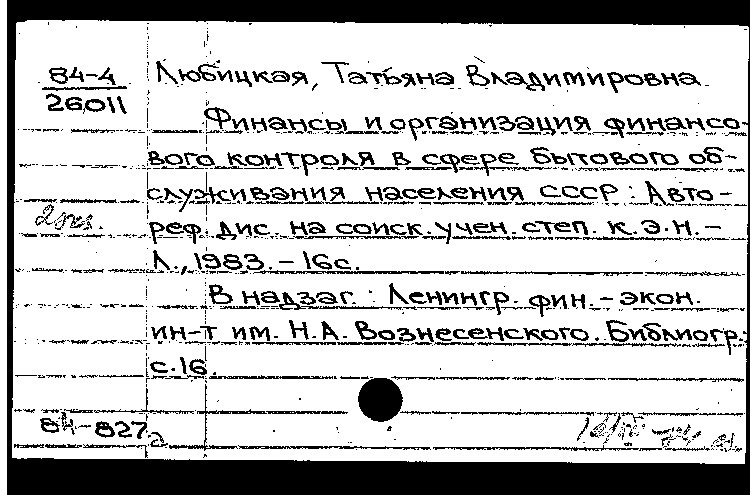 84-4
26011
Любицкая, Татьяна Владимировна
Финансы и организация финансо-
вого контроля в сфере бытового об-
служивания населения СССР : Авто-
реф. дис. на соиск. учен. степ. к.э.н. -
Л., 1983. - 16 с.
2 экз.
В надзаг. : Ленингр. фин. - экон.
ин-т им. Н.А. Вознесенского. Библиогр.:
с. 16.
84-827